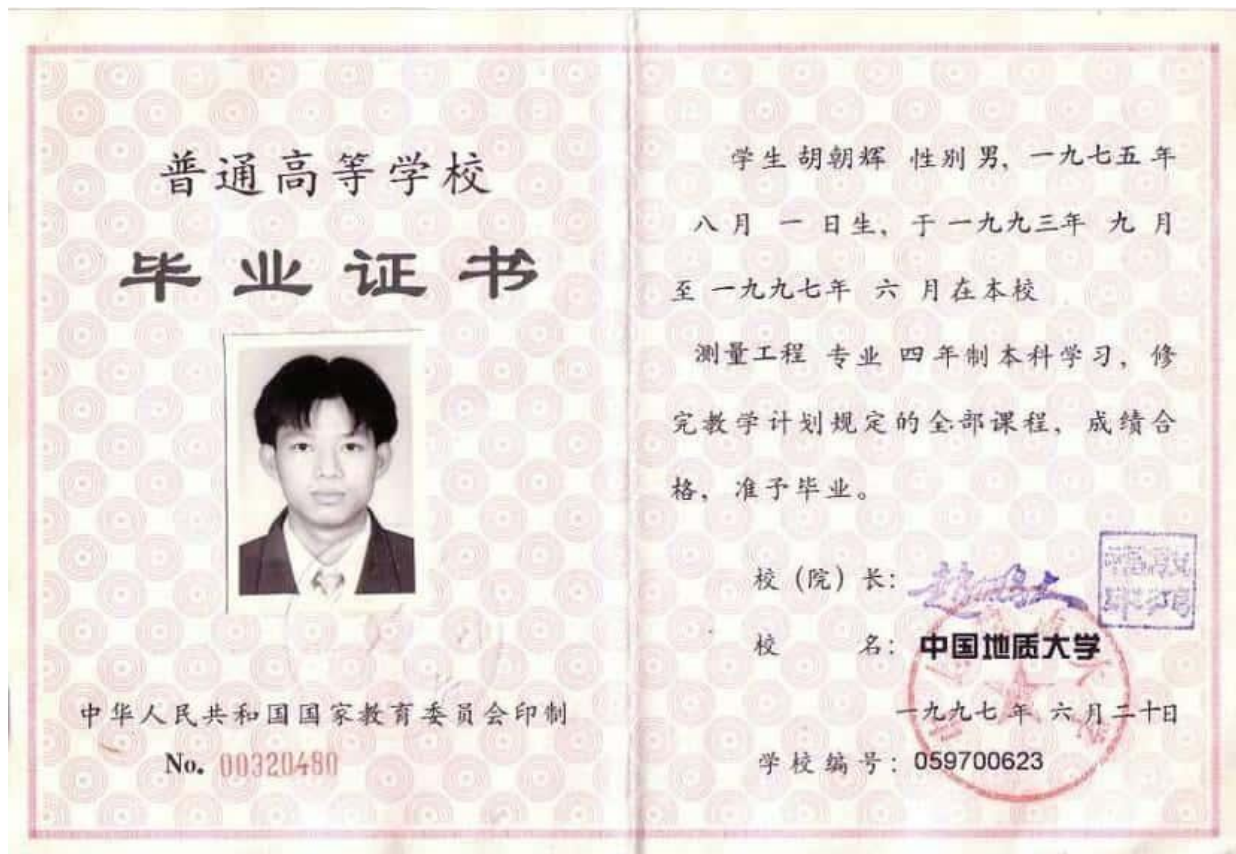 普通高等学校
毕业证书
中华人民共和国国家教育委员会印制
No. 00320480
学生胡朝辉 性别男, 一九七五年
八月 一 日生, 于一九九三年 九 月
至一九九七年 六 月在本校
测量工程 专业 四年制本科学习, 修
完教学计划规定的全部课程, 成绩合
格, 准予毕业。
校(院)长: 赵鹏大
校 名: 中国地质大学
一九九七年 六月二十日
学校编号: 059700623